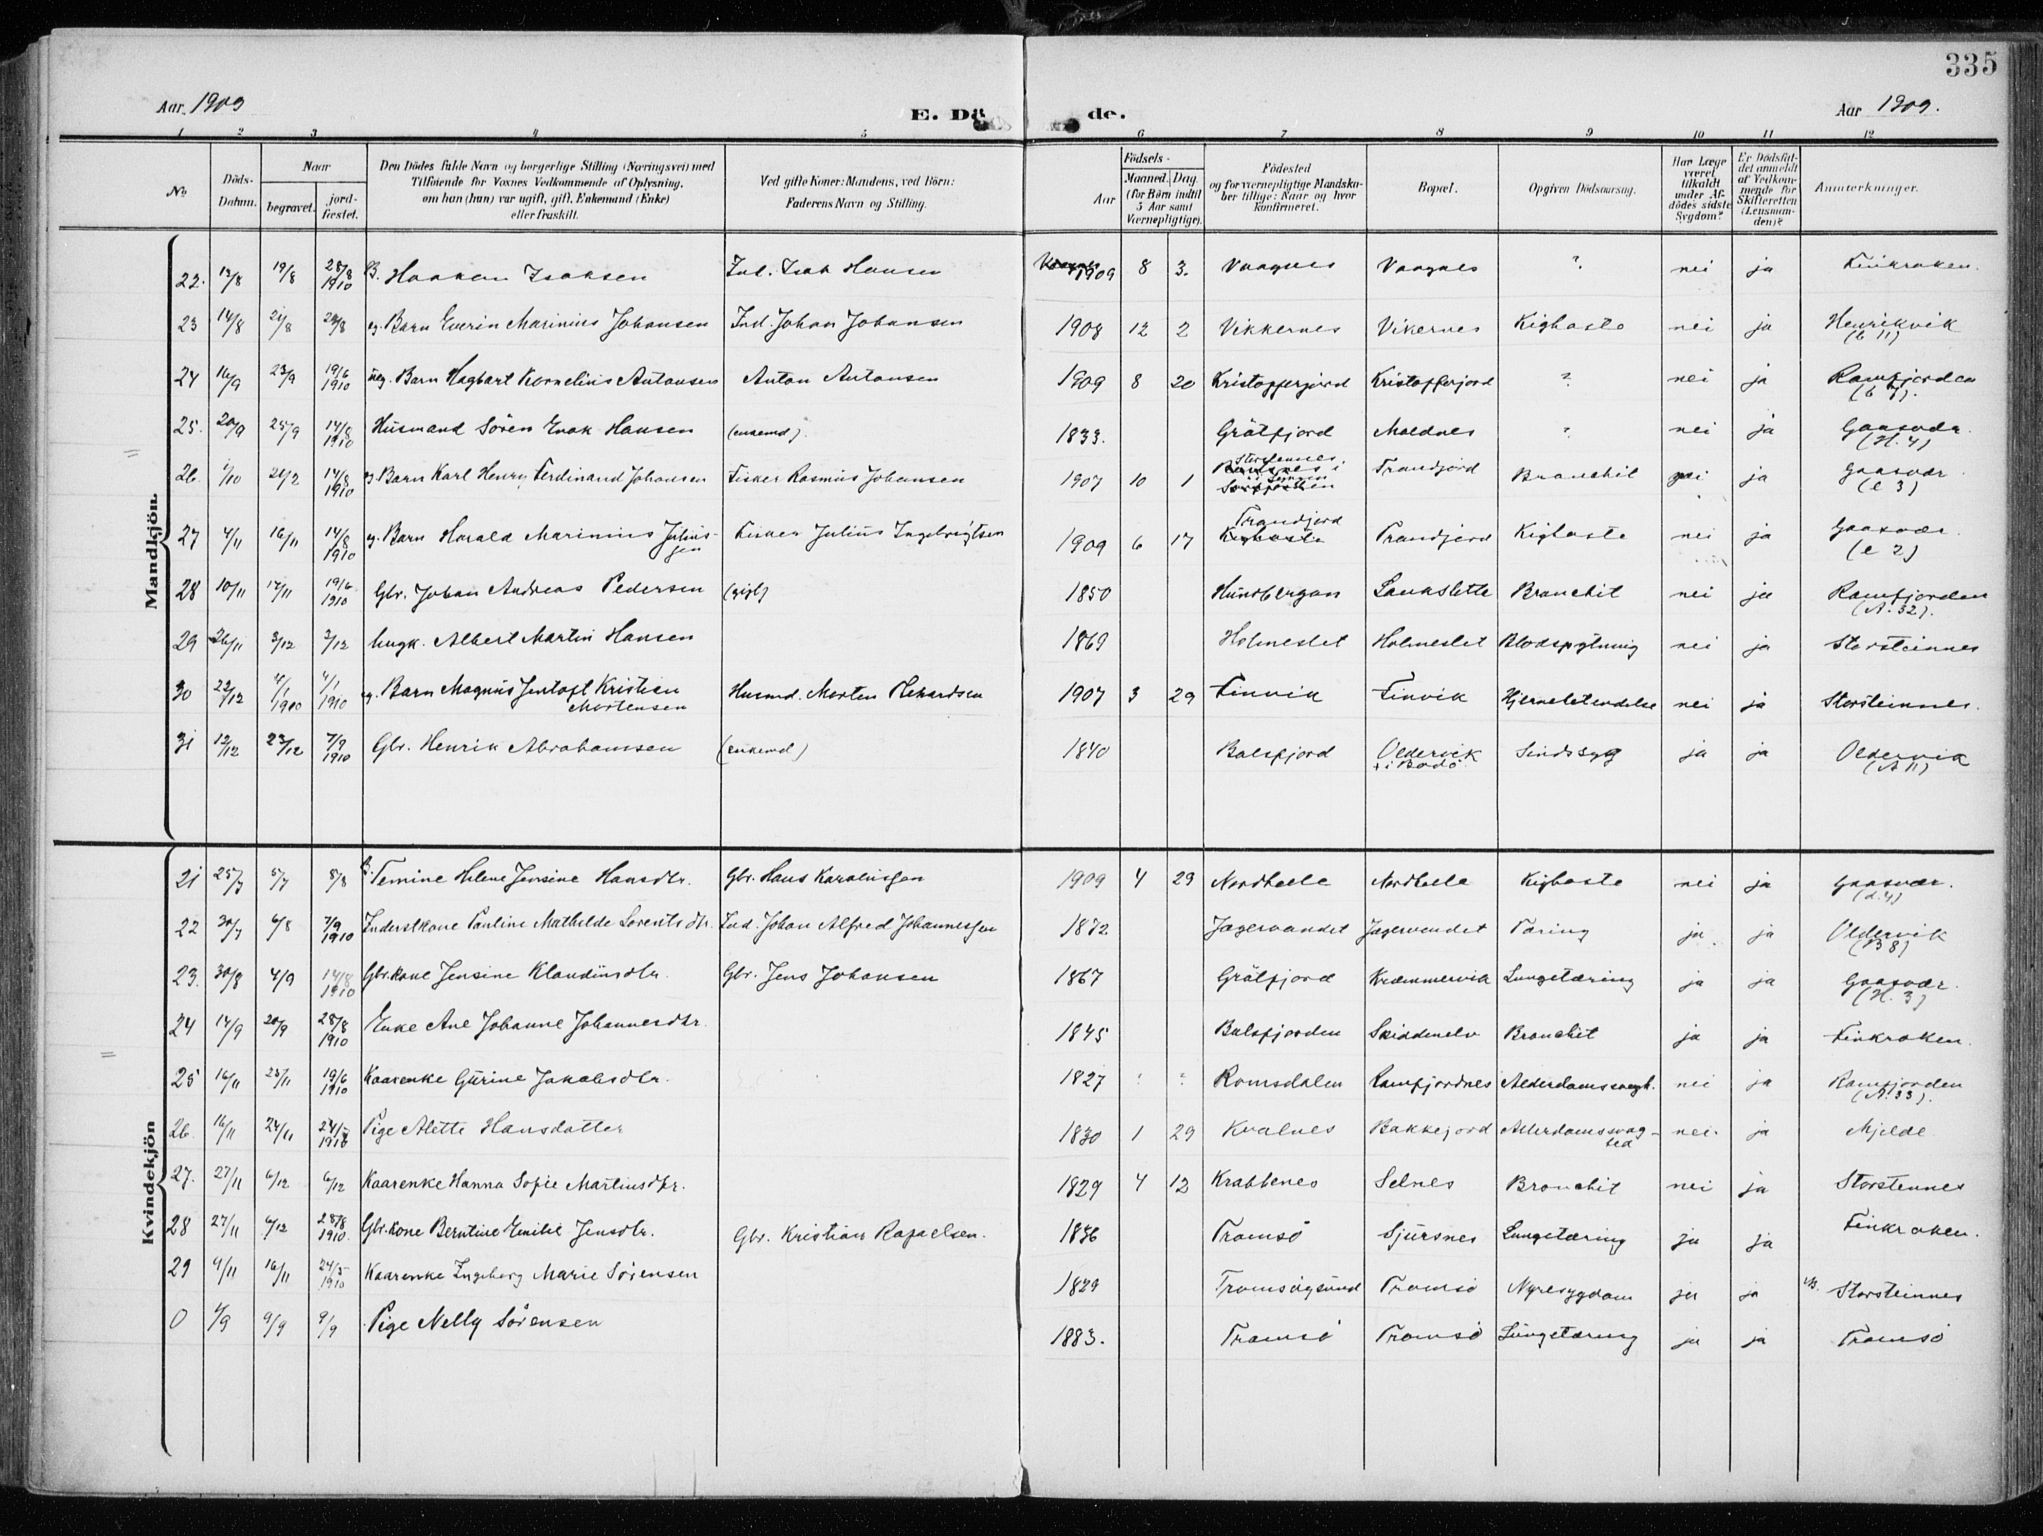 335
Aar 1909 E. Dö de. Aar 1909.
1 2 3 4 5 6 7 8 9 10 11 12
No. Döds-Datum. Naar begravet. jord-fæstet. Den Dödes fulde Navn og borgerlige Stilling (Næringsvei) med Tilföiende for Voxnes Vedkommende af Oplysning, om han (hun) var ugift, gift, Enkemand (Enke) eller fraskilt. Ved gifte Koner: Mandens, ved Börn: Faderens Navn og Stilling. Födsels- Aar Maaned. Dag. (for Börn indtil 5 Aar samt Værnepligtige). Födested og for værnepligtige Mandskaber tillige: Naar og hvor konfirmeret. Bopæl. Opgiven Dödsaarsag. Har Læge været tilkaldt under Afdödes sidste Sygdom? Er Dödsfaldet anmeldt af Vedkommende for Skifteretten (Lensmanden)? Anmærkninger.
Mandkjön.
22. 13/8 19/8 28/8 1910 B. Haakon Isaksen Ind. Isak Hansen 1909 8 3. Vaagnes Vaagnes ? nei ja Finkroken.
23 14/8 21/8 22/8 eg. Barn Everin Marinius Johansen Ind. Johan Johansen 1908 12 2 Vikkernes Vikernes Kighoste nei ja Henrikvik (b 11)
24 16/9 23/9 19/6 1910 ueg. Barn Hagbart Kornelius Antonsen Anton Antonsen 1909 8 20 Kristofferjord Kristofferjord ? nei ja Ramfjorden (b 7).
25. 20/9 25/9 14/8 1910 Husmand Sören Enok Hansen (enkemd). 1833. Grötfjord Moldnes ? nei ja Gaasvær. (H. 4)
26. 1/10 14/8 1910 eg Barn Karl Henry Ferdinand Johansen Fisker Rasmus Johansen 1907 10 1 Storstennes. Trondjord Bronchit nei ja Gaasvær (e 3)
27 4/11 16/11 14/8 1910 eg. Barn Harald Marinius Juliussen Fisker Julius Ingebrigtsen 1909 6 17 Trondjord Kighoste Trondjord Kighoste nei ja Gaasvær (e 2)
28 10/11 17/11 19/6 1910 Gbr. Johan Andreas Pedersen (gift) 1850 Hundbergan Laukslette Bronchit nei ja Ramfjorden (A. 32).
29 26/11 3/12 3/12 ungk. Albert Martin Hansen 1869 Holmeslet Holmeslet Blodspytning nei ja Storsteinnes
30 22/12 4/1 1910 4/1 1910 eg. Barn Magnus Jentoft Kristian Mortensen Husmd. Morten Rikardsen 1907 3 29 Finvik Finvik Hjernebetendelse nei ja Storsteinnes.
31 12/12 23/12 7/9 1910 Gbr. Henrik Abrahamsen (enkemd) 1840 Balsfjord Oldervik + i Bodö Sindssyg ja ja Oldervik (A 11)
Kvindekjön
21 25/7 5/7 8/8 B. Temine Helene Jensine Hansdtr. Gbr. Hans Karoliussen 1909 4 29 Nordhelle Nordhelle Kighoste nei ja Gaasvær. (d. 4)
22 30/7 6/8 7/9 1910 Inderstkone Pauline Mathilde Lorentsdtr. Ind. Johan Alfred Johannessen 1872 Jægervandet Jægervandet Tæring ja ja Oldervik (B 8)
23. 30/8 4/9 14/8 1910 Gbr.kone Jensine Klaudiusdtr. Gbr. Jens Johansen 1867 Grötfjord Kræmmervik Lungetæring ja ja Gaasvær. (H. 3)
24 14/9 20/9 28/8 1910 Enke Ane Johanne Johannesdtr. 1845 Balsfjorden Skiddenelv Bronchit ja ja Finkroken.
25 16/11 25/11 19/6 1910 Kaarenke Gurine Jakobsdtr. 1827 ? ? Romsdalen Ramfjordnes Alderdomssvagh. nei ja Ramfjorden (A. 33).
26. 16/11 24/11 24/5 1910 Pige Alette Hansdatter 1830 1 29 Kvalnes Bakkejord Alderdomssvaghed nei. ja Mjelde
27. 27/11 6/12 6/12 Kaarenke Hanna Sofie Martinsdtr. 1829 4 12 Krabbenes Selnes Bronchit nei ja Storstennes
28 27/11 6/12 28/8 1910. Gbr.kone Berntine Emilie Jensdtr. Gbr. Kristian Rafaelsen. 1876 Tromsö Sjursnes Lungetæring ja ja Finkroken.
29 9/11 16/11 24/5 1910 Kaarenke Ingeborg Marie Sörensen 1829 Tromsösund Tromsö Nyresygdom ja ja Storsteinnes
0 4/9 9/9 9/9 Pige Nelly Sörensen 1883. Tromsö Tromsö Lungetæring ja ja Tromsö